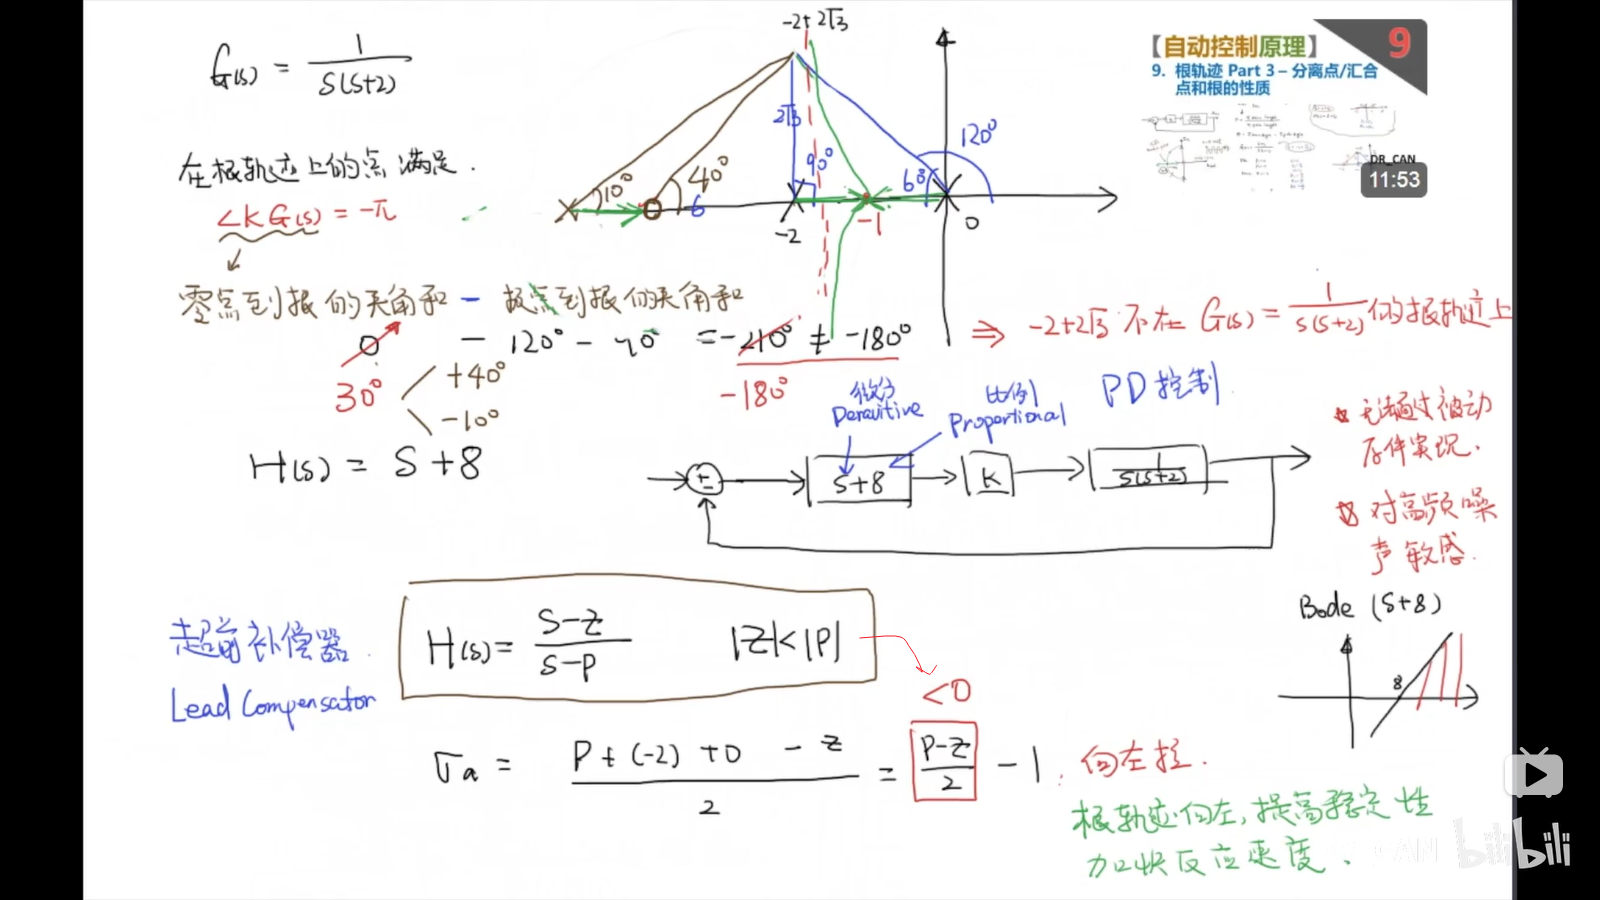 G(s) = 1/(s(s+2))
在根轨迹上的点满足.
∠KG(s) = -π
零点到根的夹角和 - 极点到根的夹角和
0 - 120° - 90° = -210° ≠ -180°
30°
+40°
-10°
-180°
⇒ -2+2√3 不在 G(s) = 1/(s(s+2)) 的根轨迹上
-2+2√3
2√3
10°
40°
6
90°
60°
120°
-2
-1
0
【自动控制原理】
9
9. 根轨迹 Part 3 – 分离点/汇合
点和根的性质
DR_CAN
11:53
H(s) = S+8
微分
Deravitive
比例
Proportional
PD 控制
+
-
S+8
K
1/(s(s+2))
无法通过被动
存件实现.
对高频噪
声敏感.
Bode (S+8)
8
超前补偿器
Lead Compensator
H(s) = (S-Z)/(S-P) |Z|<|P|
<0
σa = (P+(-2)+0 - Z)/2 = (P-Z)/2 - 1. 向左拉.
根轨迹向左,提高稳定性
加快反应速度.
CAN
bilibili